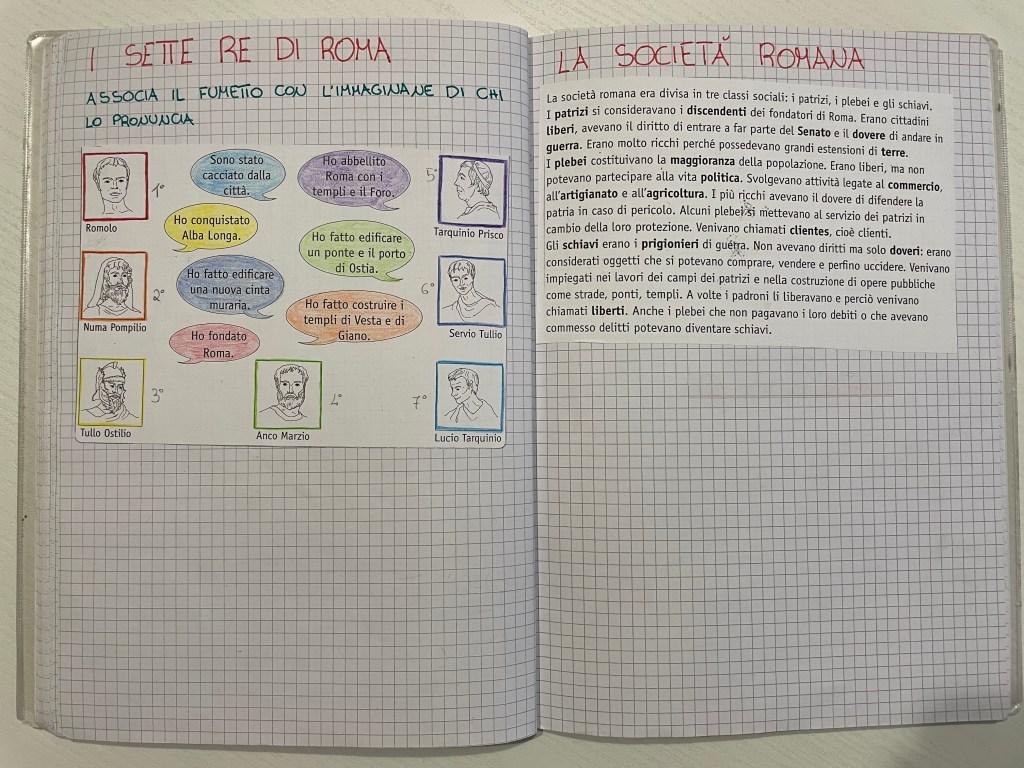 I SETTE RE DI ROMA
ASSOCIA IL FUMETTO CON L'IMMAGINANE DI CHI
LO PRONUNCIA
Romolo
1°
Sono stato
cacciato dalla
città.
Ho abbellito
Roma con i
templi e il Foro.
5°
Tarquinio Prisco
Ho conquistato
Alba Longa.
Ho fatto edificare
un ponte e il porto
di Ostia.
Numa Pompilio
2°
Ho fatto edificare
una nuova cinta
muraria.
Ho fatto costruire i
templi di Vesta e di
Giano.
6°
Servio Tullio
Ho fondato
Roma.
Tullo Ostilio
3°
Anco Marzio
4°
7°
Lucio Tarquinio
LA SOCIETÀ ROMANA
La società romana era divisa in tre classi sociali: i patrizi, i plebei e gli schiavi.
I patrizi si consideravano i discendenti dei fondatori di Roma. Erano cittadini
liberi, avevano il diritto di entrare a far parte del Senato e il dovere di andare in
guerra. Erano molto ricchi perché possedevano grandi estensioni di terre.
I plebei costituivano la maggioranza della popolazione. Erano liberi, ma non
potevano partecipare alla vita politica. Svolgevano attività legate al commercio,
all'artigianato e all'agricoltura. I più ricchi avevano il dovere di difendere la
patria in caso di pericolo. Alcuni plebei si mettevano al servizio dei patrizi in
cambio della loro protezione. Venivano chiamati clientes, cioè clienti.
Gli schiavi erano i prigionieri di guerra. Non avevano diritti ma solo doveri: erano
considerati oggetti che si potevano comprare, vendere e perfino uccidere. Venivano
impiegati nei lavori dei campi dei patrizi e nella costruzione di opere pubbliche
come strade, ponti, templi. A volte i padroni li liberavano e perciò venivano
chiamati liberti. Anche i plebei che non pagavano i loro debiti o che avevano
commesso delitti potevano diventare schiavi.